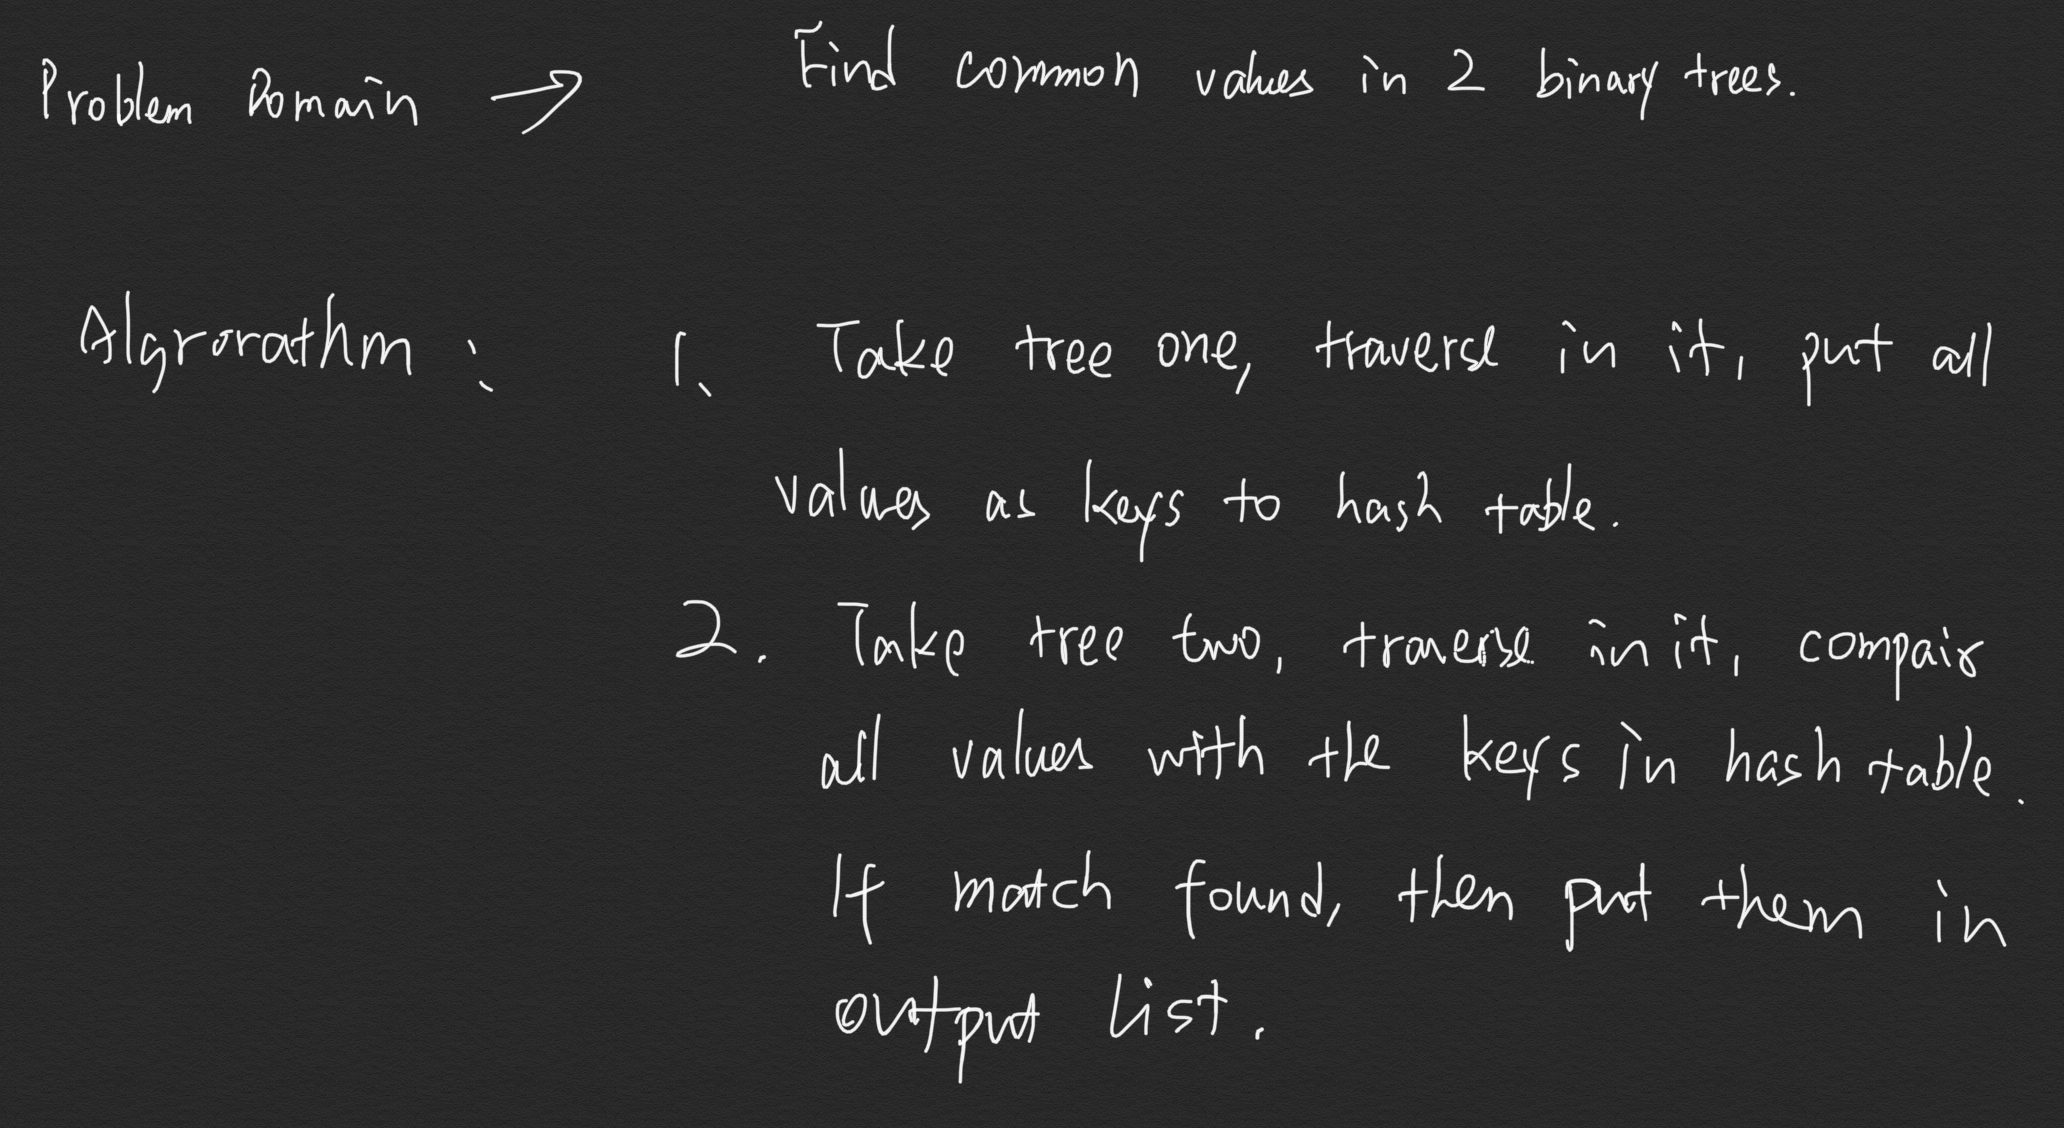 Problem Domain → Find common values in 2 binary trees.
Algrorathm : 1. Take tree one, traverse in it, put all
values as keys to hash table.
2. Take tree two, traverse in it, compair
all values with the keys in hash table.
If match found, then put them in
output list.